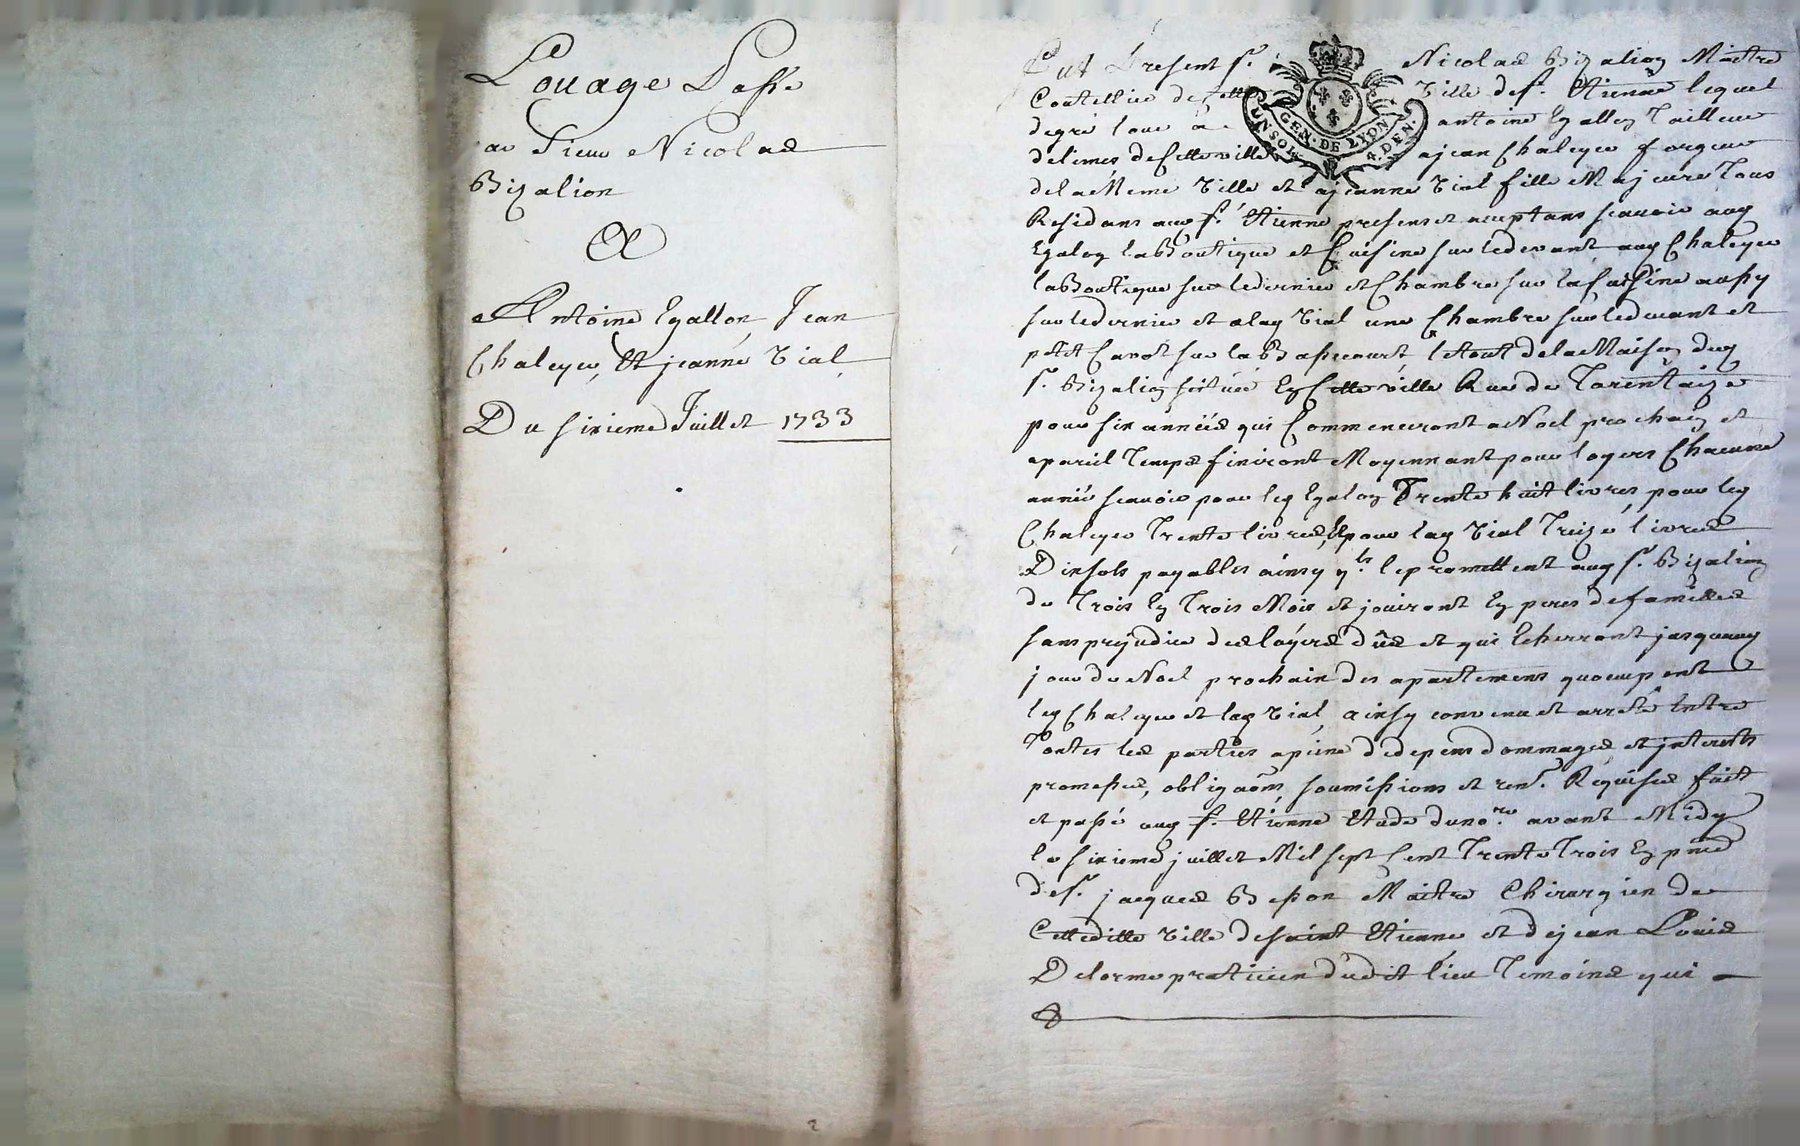 Louage Passé
au Sieur Nicolas
Bizalion
&
Antoine Egallon Jean
Chaleyer, Et jeanne Vial
Du sixieme Juillet 1733
Fut Présent sr. Nicolas Bizalion Maitre
Coutellier de cette Ville de st. Etienne lequel
degré loue a antoine Egallon Tailleur
delimes de Cette ville a jean Chaleyer forgeur
de la Meme Ville et a jeanne Vial fille Majeure Tous
Residans aud st. Etienne presens et aceptans scavoir aud
Egalon la Boutique et Cuisine sur le devant aud Chaleyer
la Boutique sur le dernier et Chambre sur la Cuisine aussy
sur le dernier et a lad Vial une Chambre sur le devant et
petit Cavot sur la Bassecourt le tout de la Maison dud
sr. Bizalion scituée En Cette ville Rue de Tarentaize
pour six années qui Commenceront a Noel prochain et
a pareil Temps finiront Moyennant pour loyers Chacune
année scavoir pour led Egalon Trente huit livres pour led
Chaleyer Trente livres Et pour lad Vial Treize livres
Dix sols payables ainsy qls. le promettent aud sr. Bizalion
de Trois En Trois Mois et jouiront En peres de familles
sans prejudice des loyers dûs et qui Echerront jusquaud
jour de Noel prochain des apartemens quocupent
led Chaleyer et lad Vial, ainsy convenu et arreté Entre
Toutes les parties a peine de depens dommages et interests
promesses, obligaons, soumissions et ren. Requises fait
et passé aud st. Etienne Etude du nore. avant Midy
le sixieme juillet Mil sept Cent Trente Trois En pnce
de sr. jacques Besson Maitre Chirurgien de
Cette ditte Ville de saint Etienne et de jean Louis
Delorme praticien dudit lieu Temoins qui
GEN. DE LYON
UN SOL
4. DEN.